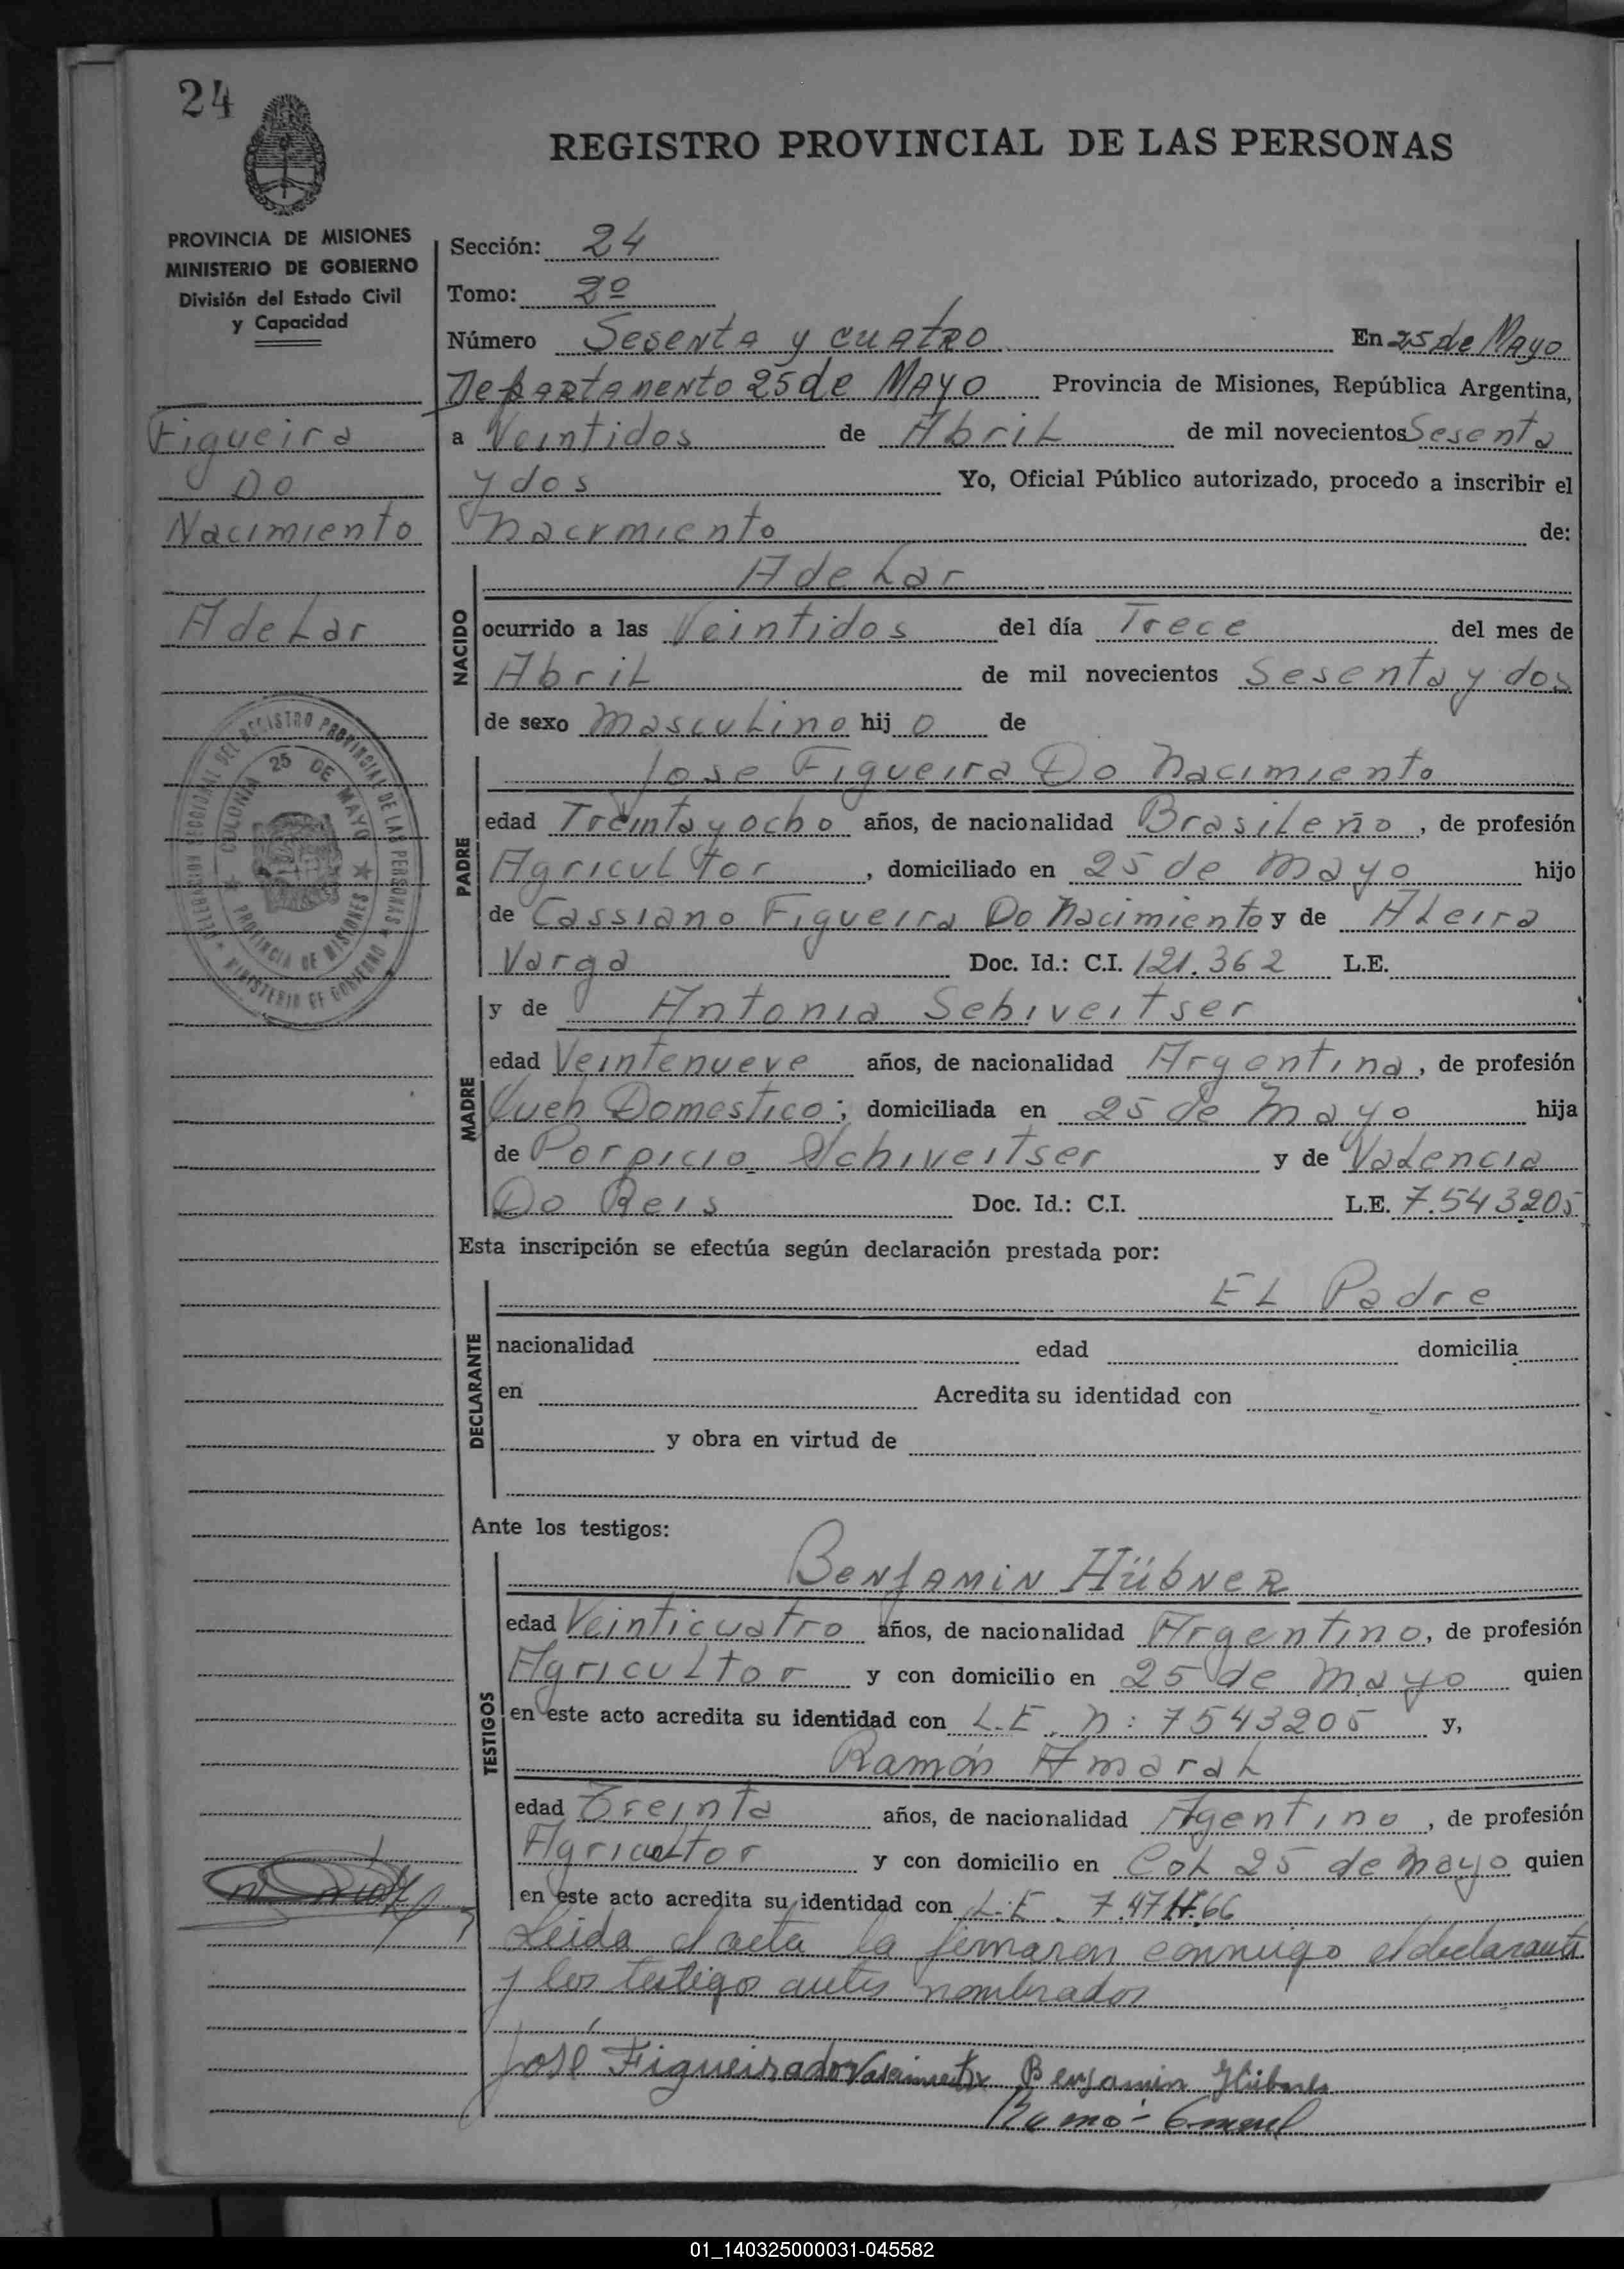 24
REGISTRO PROVINCIAL DE LAS PERSONAS
PROVINCIA DE MISIONES
MINISTERIO DE GOBIERNO
División del Estado Civil
y Capacidad
Figueira
Do
Nacimiento
Adelar
REGISTRO PROVINCIAL DE LAS PERSONAS
COLONIA 25 DE MAYO
PROVINCIA DE MISIONES
MINISTERIO DE GOBIERNO
Sección: 24
Tomo: 2º
Número Sesenta y cuatro En 25 de Mayo
Departamento 25 de Mayo Provincia de Misiones, República Argentina,
a Veintidos de Abril de mil novecientos Sesenta
y dos Yo, Oficial Público autorizado, procedo a inscribir el
nacimiento de:
NACIDO
Adelar
ocurrido a las Veintidos del día Trece del mes de
Abril de mil novecientos Sesenta y dos
de sexo masculino hijo de
PADRE
Jose Figueira Do Nacimiento
edad Treinta y ocho años, de nacionalidad Brasileño, de profesión
Agricultor, domiciliado en 25 de Mayo hijo
de Cassiano Figueira Do Nacimiento y de Aleira
Varga Doc. Id.: C.I. 121.362 L.E.
MADRE
y de Antonia Schiveitser
edad Veintenueve años, de nacionalidad Argentina, de profesión
Queh Domestico; domiciliada en 25 de Mayo hija
de Porpicio Schiveitser y de Valencia
Do Reis Doc. Id.: C.I. L.E. 7.543205
Esta inscripción se efectúa según declaración prestada por:
DECLARANTE
El Padre
nacionalidad edad domicilia
en Acredita su identidad con
y obra en virtud de
Ante los testigos:
TESTIGOS
Benjamin Hübner
edad Veinticuatro años, de nacionalidad Argentino, de profesión
Agricultor y con domicilio en 25 de Mayo quien
en este acto acredita su identidad con L.E. N: 7543205 y,
Ramón Amaral
edad Treinta años, de nacionalidad Agentino, de profesión
Agricultor y con domicilio en Col 25 de Mayo quien
en este acto acredita su identidad con L.E.
Leida el acta la firmaron conmigo el declarante
y los testigo antes nombrados
José Figueira do Nascimento Benjamin Hübner
01_140325000031-045582